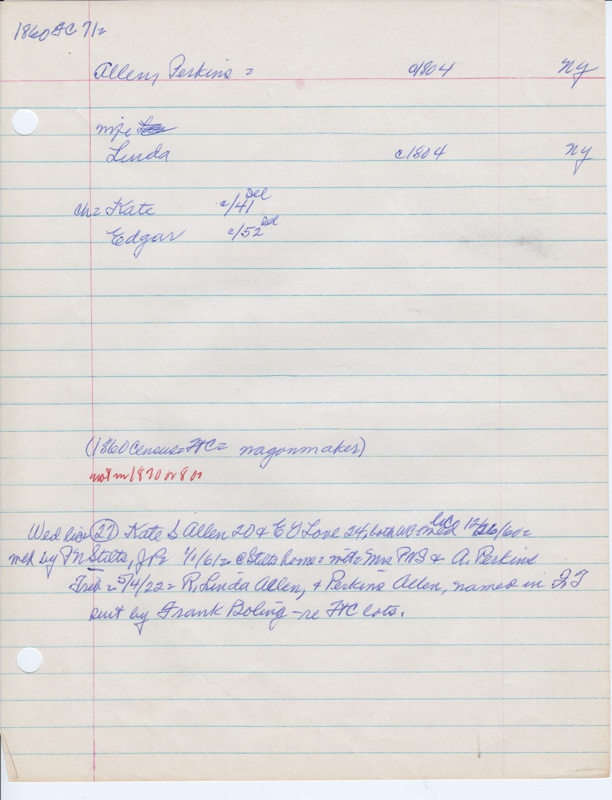 1860 FC 71=
Allen, Perkins = c1804 NY
wife
Linda c1804 NY
ch= Kate c/41 Ill
Edgar c/52
(1860 Census = FtC = wagonmaker)
not in 1870 or 80
Wed lic (27) Kate S Allen 20 & E Love 24, both WC lic 12/26/60=
med by F N Stilts, J.P. 1/1/61= @ Stilts home = wit= Mrs FNS & A. Perkins
Trib = 5/4/22 = R. Linda Allen, & Perkins Allen, named in
suit by Frank Boling - re FtC lots.